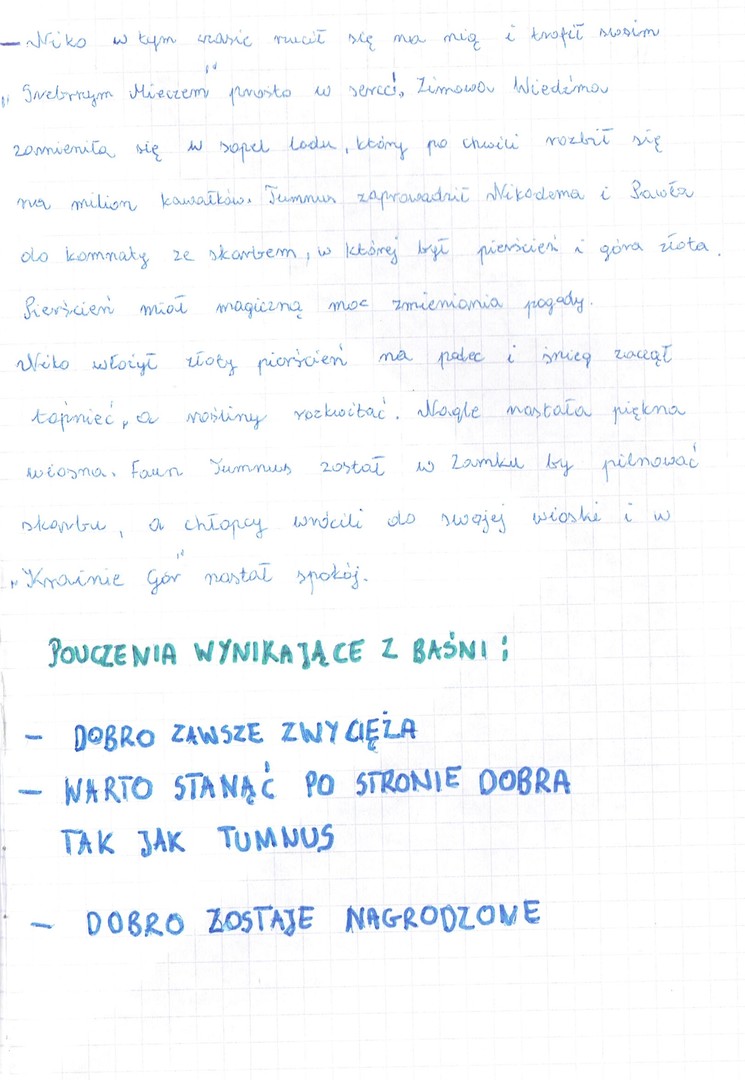 – Niko w tym czasie rzucił się na nią i trafił swoim
„Srebrnym Mieczem" prosto w serce!, Zimowa Wiedźma
zamieniła się w sopel lodu, który po chwili rozbił się
na milion kawałków. Tumnus zaprowadził Nikodema i Pawła
do komnaty ze skarbem, w której był pierścień i góra złota.
Pierścień miał magiczną moc zmieniania pogody.
Niko włożył złoty pierścień na palec i śnieg zaczął
topnieć, a rośliny rozkwitać. Nagle nastała piękna
wiosna. Faun Tumnus został w Zamku by pilnować
skarbu, a chłopcy wrócili do swojej wioski i w
„Krainie Gór" nastał spokój.
POUCZENIA WYNIKAJĄCE Z BAŚNI:
– DOBRO ZAWSZE ZWYCIĘŻA
– WARTO STANĄĆ PO STRONIE DOBRA
TAK JAK TUMNUS
– DOBRO ZOSTAJE NAGRODZONE